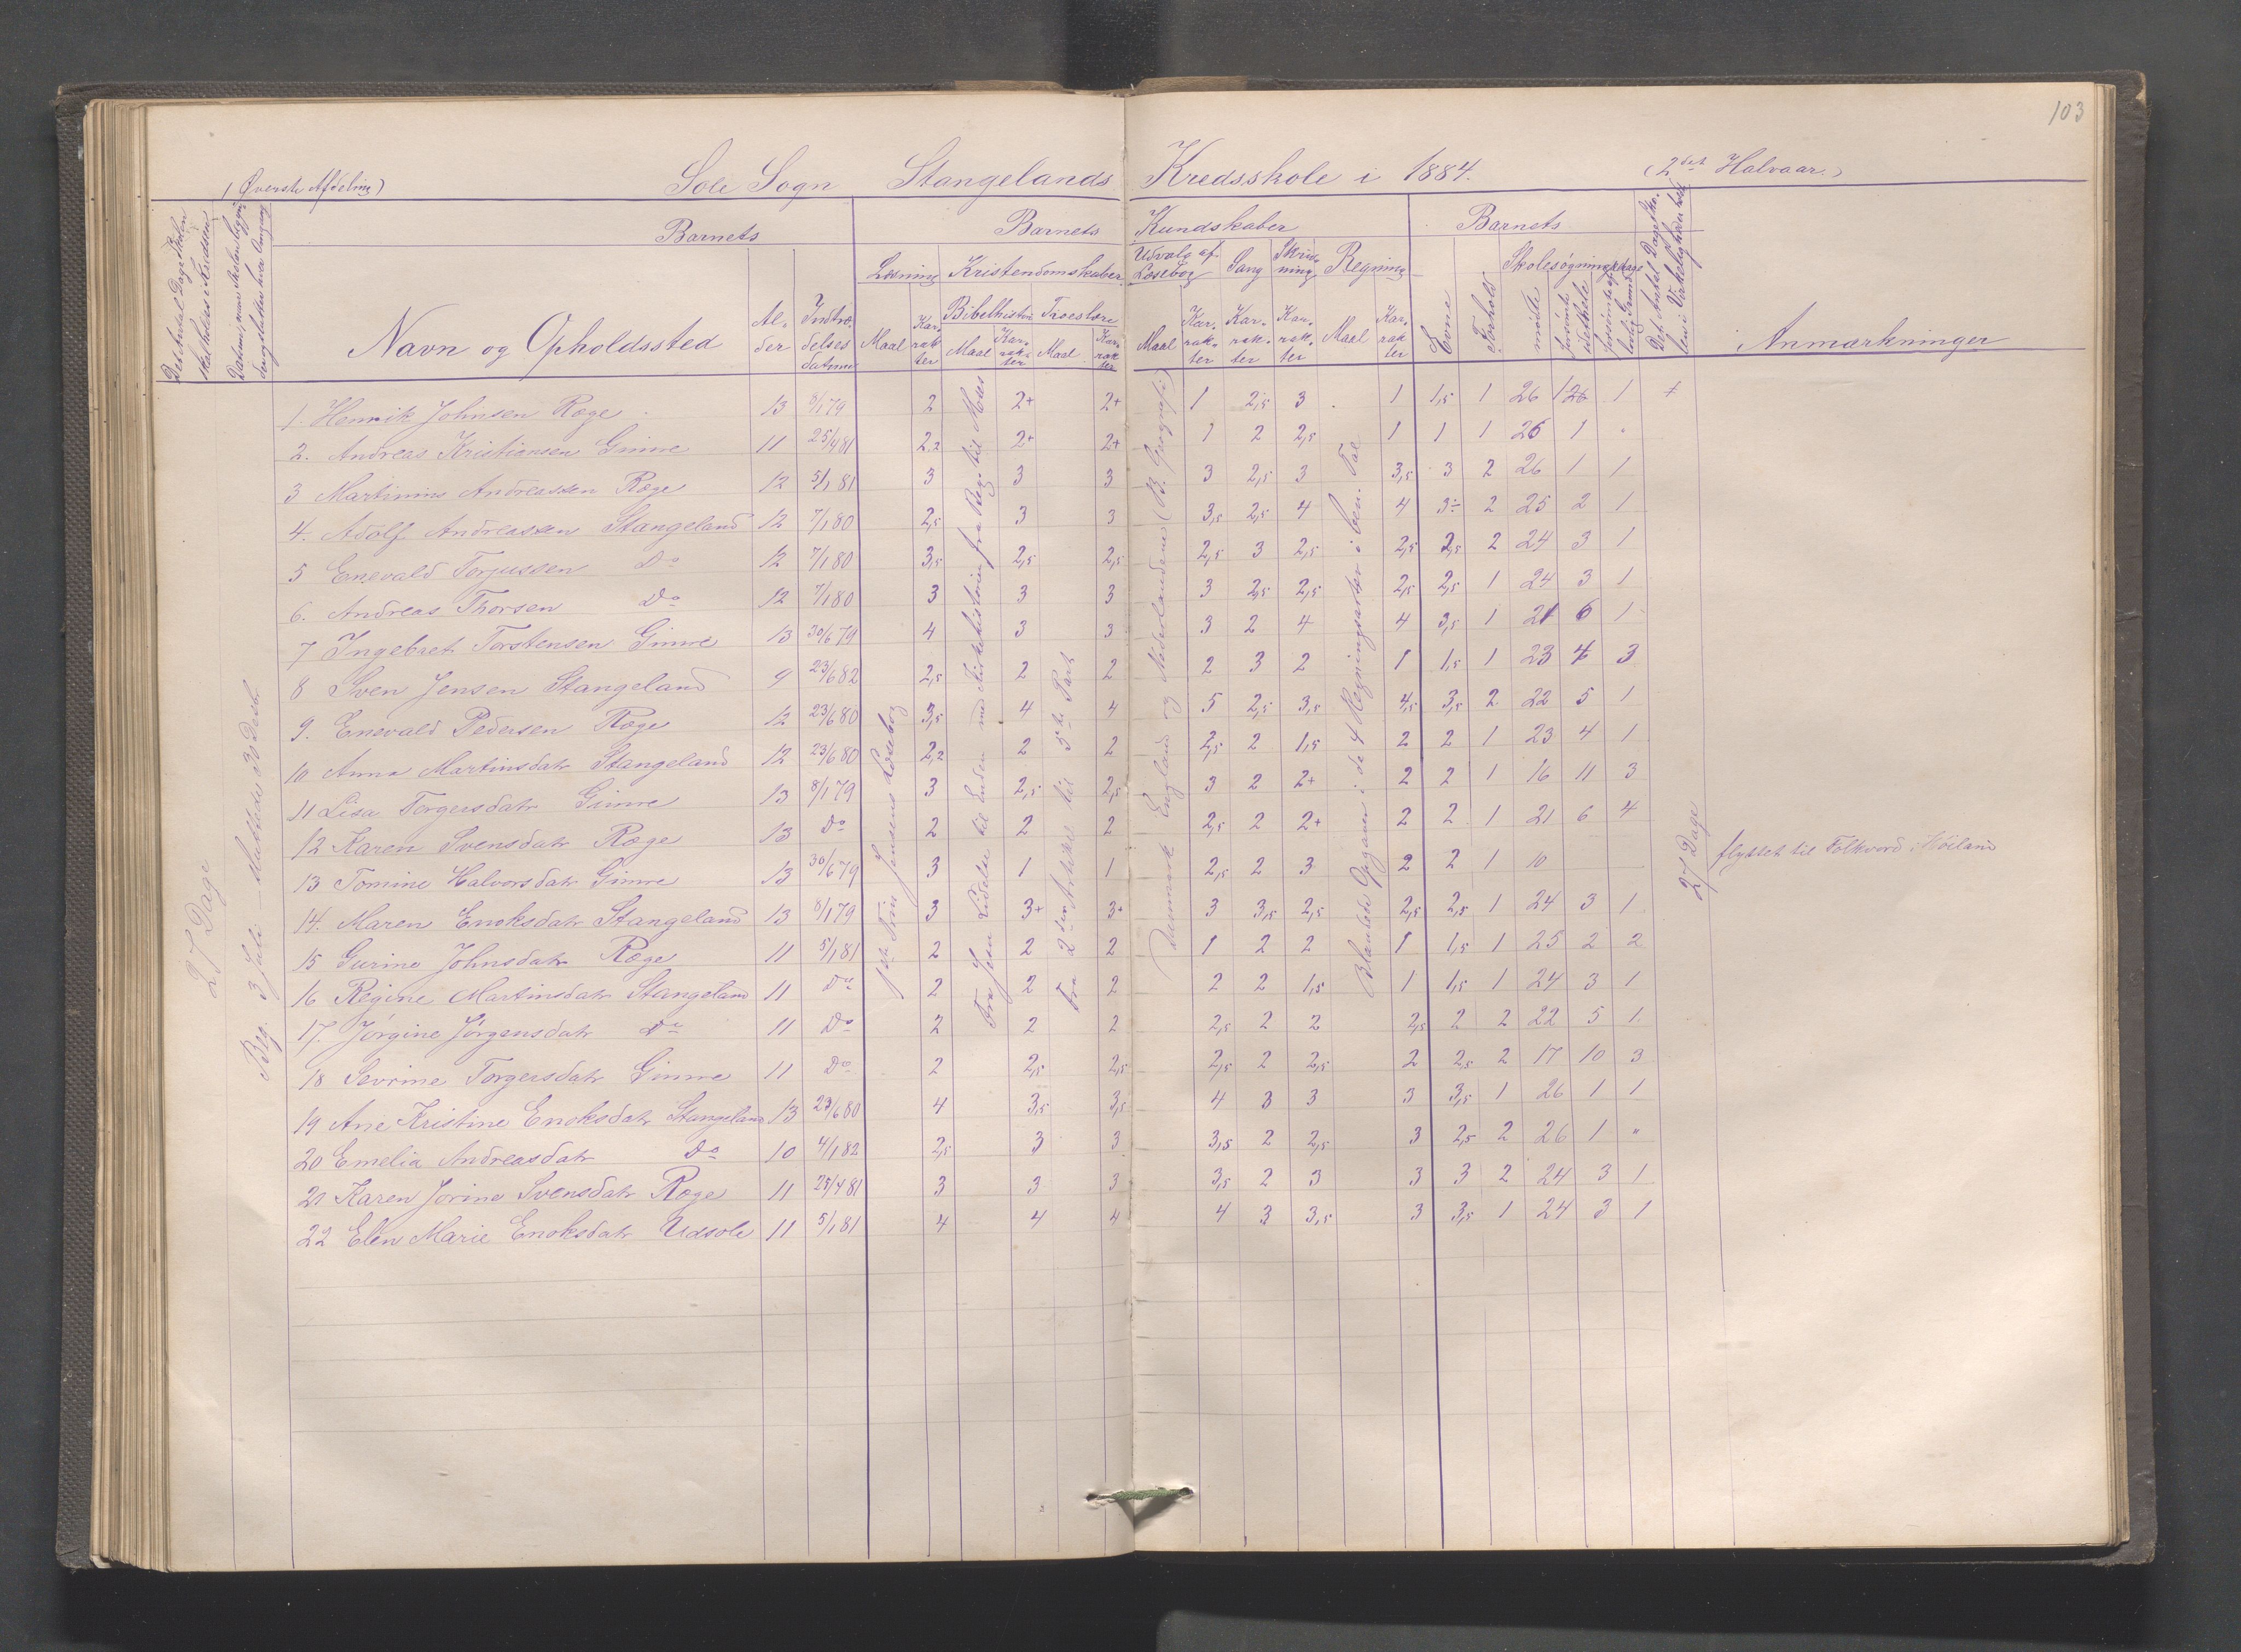 103
(Øverste Afdeling) Sole Sogn Stangelands Kredsskole i 1884. (2det Halvaar.)
Det Antal Dage Skolen skal holdes i Kredsen
Datum, naar Skolen begynder og slutter hver Omgang
Barnets
Navn og Opholdssted
Alder
Indtrædelsesdatum
Barnets Kundskaber
Læsning
Maal
Karakter
Kristendomskundskaber
Bibelhistorie
Maal
Karakter
Troeslære
Maal
Karakter
Udvalg af Læsebog
Maal
Karakter
Sang
Karakter
Skrivning
Karakter
Regning
Maal
Karakter
Barnets
Evne
Forhold
Skolesøgningsdage
mødte
forsømte i det Hele
forsømte af lovlig Grund
Det Antal Dage Skolen i Virkeligheden er holdt
Anmærkninger
27 Dage
Beg. 3 Juli – sluttede 30 Decbr
1ste Trin Jensens Læsebog
Fra Jesu Lidelse til Enden med Kirkehistorien fra Beg. til Moses
Fra 2den Artikel til 5te Part
Danmark England og Nederlandene (B. Geografi)
Blandede Opgaver i de 4 Regningsarter i ben. Tal
27 Dage
1. Henrik Johnsen Ræge 13 8/1 79 2 2+ 2+ 1 2,5 3 1 1,5 1 26 1 1 +
2. Andreas Kristiansen Gimre 11 25/4 81 2,2 2+ 2+ 1 2 2,5 1 1 1 26 1 "
3 Martinius Andreassen Ræge 12 5/1 81 3 3 3 3 2,5 3 3,5 3 2 26 1 1
4. Adolf Andreassen Stangeland 12 7/1 80 2,5 3 3 3,5 2,5 4 4 3÷ 2 25 2 1
5 Enevald Torjussen Do 12 7/1 80 3,5 2,5 2,5 2,5 3 2,5 2,5 2,5 2 24 3 1
6. Andreas Thorsen Do 12 7/1 80 3 3 3 3 2,5 2,5 2,5 2,5 1 24 3 1
7 Ingebret Torstensen Gimre 13 30/6 79 4 3 3 3 2 4 4 3,5 1 21 6 1
8 Sven Jensen Stangeland 9 23/6 82 2,5 2 2 2 3 2 1 1,5 1 23 4 3
9. Enevald Pedersen Ræge 12 23/6 80 3,5 4 4 5 2,5 3,5 4,5 3,5 2 22 5 1
10 Anna Martinsdatr Stangeland 12 23/6 80 2,2 2 2 2,5 2 1,5 2 2 1 23 4 1
11 Lisa Torgersdatr Gimre 13 8/1 79 3 2,5 2,5 3 2 2+ 2 2 1 16 11 3
12 Karen Svensdatr Ræge 13 Do 2 2 2 2,5 2 2+ 2 2 1 21 6 4
13 Tomine Halvorsdatr Gimre 13 30/6 79 3 1 1 2,5 2 3 2 2 1 10 flyttet til Folkvord i Höiland
14. Maren Enoksdatr Stangeland 13 8/1 79 3 3+ 3+ 3 3,5 2,5 2,5 2,5 1 24 3 1
15 Gurine Johnsdatr Ræge 11 5/1 81 2 2 2 1 2 2 1 1,5 1 25 2 2
16 Regine Martinsdatr Stangeland 11 Do 2 2 2 2 2 1,5 1 1,5 1 24 3 1
17. Jörgine Jörgensdatr Do 11 Do 2 2 2 2,5 2 2 2,5 2 2 22 5 1
18 Sevrine Torgersdatr Gimre 11 Do 2 2,5 2,5 2,5 2 2,5 2 2,5 2 17 10 3
19 Ane Kristine Enoksdatr Stangeland 13 23/6 80 4 3,5 3,5 4 3 3 3 3,5 1 26 1 1
20 Emelia Andreasdatr Do 10 4/1 82 2,5 3 3 3,5 2 2,5 3 2,5 2 26 1 "
21 Karen Jorine Svensdatr Ræge 11 25/4 81 3 3 3 3,5 2 3 3 3 2 24 3 1
22 Elen Marie Enoksdatr Udsole 11 5/1 81 4 4 4 4 3 3,5 3 3,5 1 24 3 1